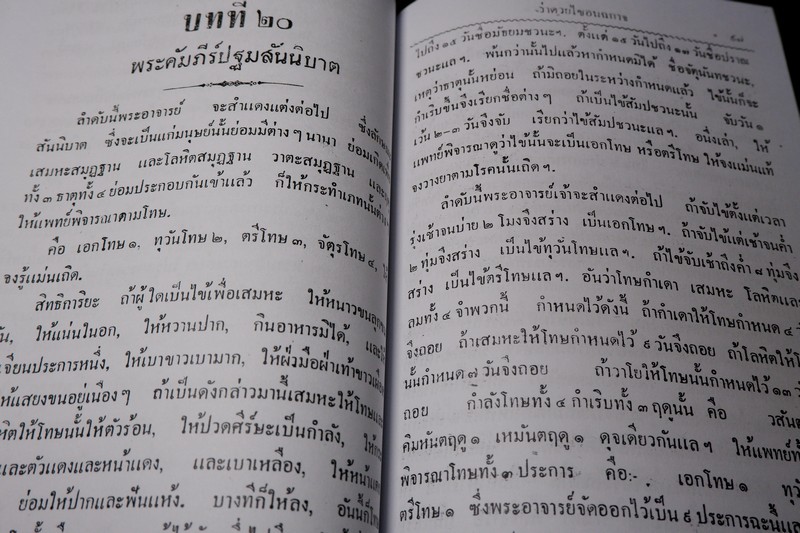 บทที่ ๒๐
พระคัมภีร์ปฐมสันนิบาต
ลำดับนี้พระอาจารย์ จะสำแดงแต่งต่อไป
สันนิบาต ซึ่งจะเป็นแก่มนุษย์นั้นย่อมมีต่างๆ นานา
เสมหะสมุฏฐาน และโลหิตสมุฏฐาน วาตะสมุฏฐาน และ
ทั้ง ๓ ธาตุทั้ง ๔ ย่อมประกอบกันเข้าแล้ว ก็ให้กระทำเภทนั้น
ให้แพทย์พิจารณาตามโทษ.
คือ เอกโทษ ๑, ทุวันโทษ ๒, ตรีโทษ ๓, จัตุรโทษ ๔,
จงรู้แม่นเถิด.
สิทธิการิยะ ถ้าผู้ใดเป็นไข้เพื่อเสมหะ ให้หนาวขนลุก
ให้แน่นในอก, ให้หวานปาก, กินอาหารมิได้,
เจียนประการหนึ่ง, ให้เบาขาวเบามาก, ให้ฝ่ามือฝ่าเท้าขาว
ให้แสยงขนอยู่เนืองๆ ถ้าเป็นดังกล่าวมานี้เสมหะให้โทษ
ให้โทษนั้นให้ตัวร้อน, ให้ปวดศีร์ษะเป็นกำลัง,
และตัวแดงและหน้าแดง, และเบาเหลือง,
ย่อมให้ปากและฟันแห้ง. บางทีก็ให้ลง,
ไปถึง ๑๕ วันชื่อมัธยมชวนะฯ. ตั้งแต่ ๑๕ วันไปถึง ๑๓ วันชื่อปราณ
ชวนะแลฯ. พ้นกว่านั้นไปแล้วหากำหนดมิได้ ชื่อจัตุนันทชวนะ,
เหตุว่าธาตุนั้นหย่อน ถ้ามิถอยในระหว่างกำหนดแล้ว ไข้นั้นก็จะ
กำเริบขึ้นจึงเรียกชื่อต่างๆ ถ้าเป็นไข้สัปปชวนะนั้น จับวัน ๑
เว้น ๒-๓ วันจึงจับ เรียกว่าไข้สัปปชวนะแลฯ. อนึ่งเล่า, ให้
แพทย์พิจารณาดูว่าไข้นั้นจะเป็นเอกโทษ หรือตรีโทษ ให้จงแม่นแท้
จงวางยาตามโรคนั้นเถิดฯ.
ลำดับนี้พระอาจารย์เจ้าจะสำแดงต่อไป ถ้าจับไข้ตั้งแต่เวลา
รุ่งเช้าจนบ่าย ๒ โมงจึงสร่าง เป็นเอกโทษฯ. ถ้าจับไข้แต่เช้าจนค่ำ
๒ ทุ่มจึงสร่าง เป็นไข้ทุวันโทษแลฯ. ถ้าไข้จับเช้าถึงค่ำ ๘ ทุ่มจึง
สร่าง เป็นไข้ตรีโทษแลฯ. อันว่าโทษกำเดา เสมหะ โลหิตและ
ลมทั้ง ๔ จำพวกนี้ กำหนดไว้ดังนี้ ถ้ากำเดาให้โทษกำหนด ๔
จึงถอย ถ้าเสมหะให้โทษกำหนดไว้ ๙ วันจึงถอย ถ้าโลหิตให้
นั้นกำหนด ๗ วันจึงถอย ถ้าวาโยให้โทษนั้นกำหนดไว้ ๑๓
ถอย กำลังโทษทั้ง ๔ กำเริบทั้ง ๓ ฤดูนั้น คือ
คิมหันตฤดู ๑ เหมันตฤดู ๑ ดุจเดียวกันแลฯ ให้แพทย์
พิจารณาโทษทั้ง ๓ ประการ คือ:- เอกโทษ ๑
ตรีโทษ ๑ ซึ่งพระอาจารย์จัดออกไว้เป็น ๙ ประการฉะนี้